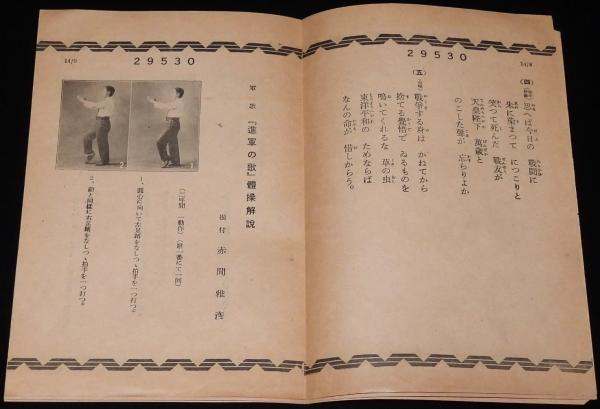 29530
14/8
(四)
思へば今日の 戦闘に
朱に染まつて につこりと
笑つて死んだ 戦友が
天皇陛下 萬歳と
のこした聲が 忘らりよか
(五)
戰爭する身は かねてから
捨てる覺悟で ゐるものを
鳴いてくれるな 草の虫
東洋平和の ためならば
なんの命が 惜しからう。
29530
14/9
軍歌 『進軍の歌』體操解説
振付 赤間雅彦
1、圓心に向いて左足踏をなしつゝ拍手を一つ打つ。
2、前と同樣に右足踏をなしつゝ拍手を一つ打つ。
1
2